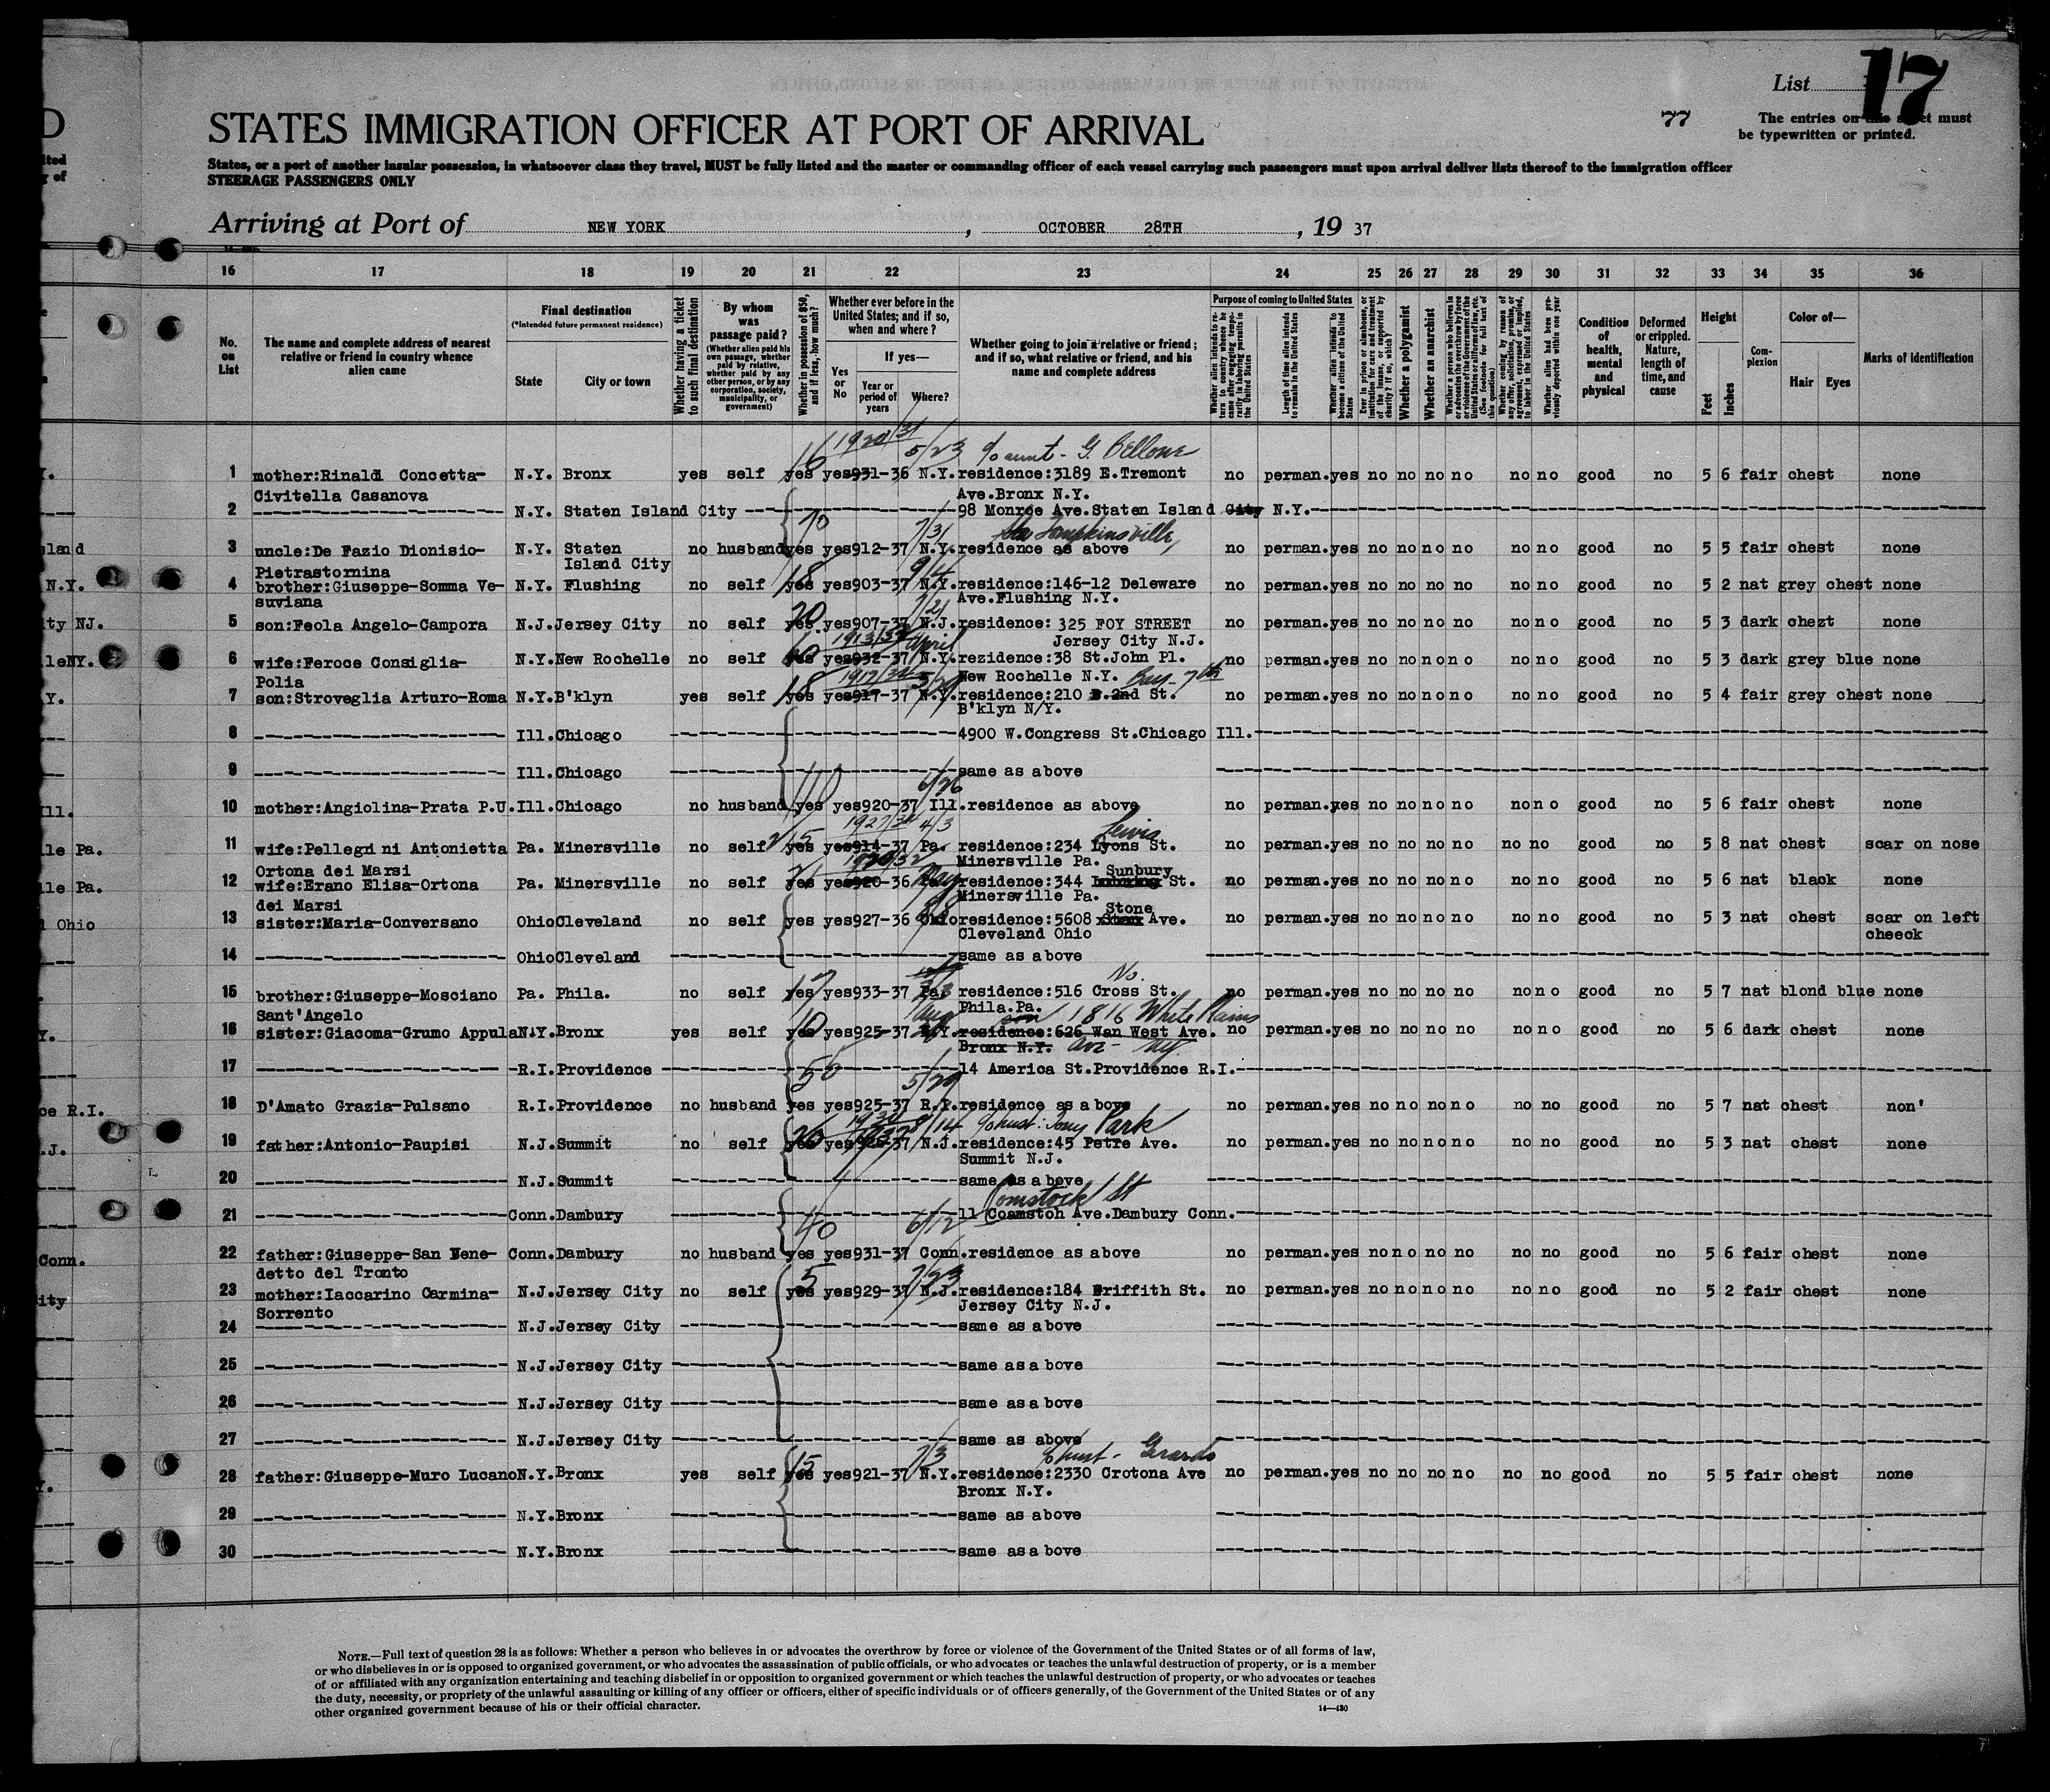 List 17
77
The entries on this sheet must
be typewritten or printed.
STATES IMMIGRATION OFFICER AT PORT OF ARRIVAL
States, or a port of another insular possession, in whatsoever class they travel, MUST be fully listed and the master or commanding officer of each vessel carrying such passengers must upon arrival deliver lists thereof to the immigration officer
STEERAGE PASSENGERS ONLY
Arriving at Port of NEW YORK, OCTOBER 28TH, 19 37
16 17 18 19 20 21 22 23 24 25 26 27 28 29 30 31 32 33 34 35 36
No. on List
The name and complete address of nearest relative or friend in country whence alien came
Final destination
(*Intended future permanent residence)
State
City or town
Whether having a ticket to such final destination
By whom was passage paid?
(Whether alien paid his own passage, whether paid by relative, whether paid by any other person, or by any corporation, society, municipality, or government)
Whether in possession of $50, and if less, how much?
Whether ever before in the United States; and if so, when and where?
Yes or No
If yes—
Year or period of years
Where?
Whether going to join a relative or friend; and if so, what relative or friend, and his name and complete address
Purpose of coming to United States
Length of time alien intends to remain in the United States
Whether alien intends to become a citizen of the United States
Whether a polygamist
Whether an anarchist
Condition of health, mental and physical
Deformed or crippled. Nature, length of time, and cause
Height
Feet
Inches
Complexion
Color of—
Hair
Eyes
Marks of identification
1920/31 5/23 c/o aunt - G. Bellone
1 mother:Rinaldi Concetta- N.Y. Bronx yes self yes 16 yes 931-36 N.Y. residence:3189 E.Tremont no perman. yes no no no no no no good no 5 6 fair chest none
Civitella Casanova Ave.Bronx N.Y.
2 N.Y. Staten Island City 98 Monroe Ave.Staten Island City N.Y.
70 7/31 Tompkinsville
3 uncle:De Fazio Dionisio- N.Y. Staten no husband yes yes 912-37 N.Y. residence as above no perman. yes no no no no no no good no 5 5 fair chest none
Pietrastornina Island City
4 brother:Giuseppe-Somma Ve- N.Y. Flushing no self yes 18 yes 903-37 9/4 N.Y. residence:146-12 Deleware no perman. yes no no no no no no good no 5 2 nat grey chest none
suviana Ave.Flushing N.Y.
5 son:Feola Angelo-Campora N.J. Jersey City no self yes 20 yes 907-37 7/21 N.J. residence: 325 FOY STREET no perman. yes no no no no no no good no 5 3 dark chezt none
Jersey City N.J.
1913/32 April
6 wife:Feroce Consiglia- N.Y. New Rochelle no self yes 60 yes 932-37 N.Y. rezidence:38 St.John Pl. no perman. yes no no no no no no good no 5 3 dark grey blue none
Polia New Rochelle N.Y.
1917/32 Bay - 7th
7 son:Stroveglia Arturo-Roma N.Y. B'klyn yes self yes 18 yes 917-37 N.Y. residence:210 E.2nd St. no perman. yes no no no no no no good no 5 4 fair grey chest none
B'klyn N/Y.
8 Ill. Chicago 4900 W.Congress St.Chicago Ill.
9 Ill. Chicago same as above
110 6/26
10 mother:Angiolina-Prata P.U. Ill. Chicago no husband yes yes 920-37 Ill. residence as above no perman. yes no no no no no no good no 5 6 fair chest none
1927/32 4/3 Lewis
11 wife:Pellegri ni Antonietta Pa. Minersville no self yes yes 914-37 Pa. residence:234 Lyons St. no perman. yes no no no no no no good no 5 8 nat chest scar on nose
Ortona dei Marsi Minersville Pa.
Sunbury
12 wife:Erano Elisa-Ortona Pa. Minersville no self yes yes 920-36 residence:344 St. no perman. yes no no no no no no good no 5 6 nat black none
dei Marsi Minersville Pa.
Stone
13 sister:Maria-Conversano Ohio Cleveland no self yes yes 927-36 Ohio residence:5608 Ave. no perman. yes no no no no no no good no 5 3 nat chest scar on left
Cleveland Ohio cheeck
14 Ohio Cleveland same as above
No.
15 brother:Giuseppe-Mosciano Pa. Phila. no self yes 17 yes 933-37 Pa. residence:516 Cross St. no perman. yes no no no no no no good no 5 7 nat blond blue none
Sant'Angelo Phila.Pa.
1816 White Plains
16 sister:Giacoma-Grumo Appula N.Y. Bronx yes self yes 10 yes 925-37 Aug N.Y. residence:626 Wan West Ave. no perman. yes no no no no no no good no 5 6 dark chest none
Bronx N.Y. Ave - NY
17 R.I. Providence 14 America St.Providence R.I.
5/29
18 D'Amato Grazia-Pulsano R.I. Providence no husband yes yes 925-37 R.I. residence as above no perman. yes no no no no no no good no 5 7 nat chest non'
c/o hust: Tony Park
19 father:Antonio-Paupisi N.J. Summit no self yes 20 yes 928-37 8/14 N.J. residence:45 Petre Ave. no perman. yes no no no no no no good no 5 3 nat chest none
Summit N.J.
20 N.J. Summit same as above
Comstock St
21 Conn. Dambury 11 Coamston Ave.Dambury Conn.
40 6/12
22 father:Giuseppe-San Bene- Conn. Dambury no husband yes yes 931-37 Conn. residence as above no perman. yes no no no no no no good no 5 6 fair chest none
detto del Tronto
23 mother:Iaccarino Carmina- N.J. Jersey City no self yes 5 yes 929-37 7/23 N.J. residence:184 Griffith St. no perman. yes no no no no no no good no 5 2 fair chest none
Sorrento Jersey City N.J.
24 N.J. Jersey City same as above
25 N.J. Jersey City same as above
26 N.J. Jersey City same as above
27 N.J. Jersey City same as above
c/o hust - Gerardo
28 father:Giuseppe-Muro Lucano N.Y. Bronx yes self yes 15 yes 921-37 7/3 N.Y. residence:2330 Crotona Ave no perman. yes no no no no no no good no 5 5 fair chest none
Bronx N.Y.
29 N.Y. Bronx same as above
30 N.Y. Bronx same as above
NOTE.—Full text of question 28 is as follows: Whether a person who believes in or advocates the overthrow by force or violence of the Government of the United States or of all forms of law,
or who disbelieves in or is opposed to organized government, or who advocates the assassination of public officials, or who advocates or teaches the unlawful destruction of property, or is a member
of or affiliated with any organization entertaining and teaching disbelief in or opposition to organized government or which teaches the unlawful destruction of property, or who advocates or teaches
the duty, necessity, or propriety of the unlawful assaulting or killing of any officer or officers, either of specific individuals or of officers generally, of the Government of the United States or of any
other organized government because of his or their official character.
14—430